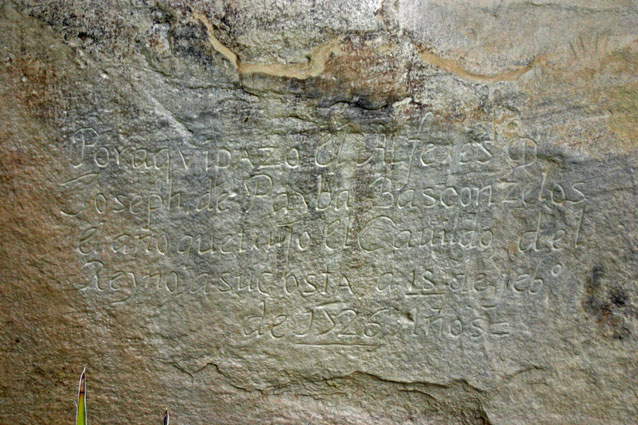 Por aqui pazo el Alferes Dn
Joseph de Payba Basconzelos
el año que trujo el Cauildo del
Reyno a su costa a 18 de febo
de 1726 años